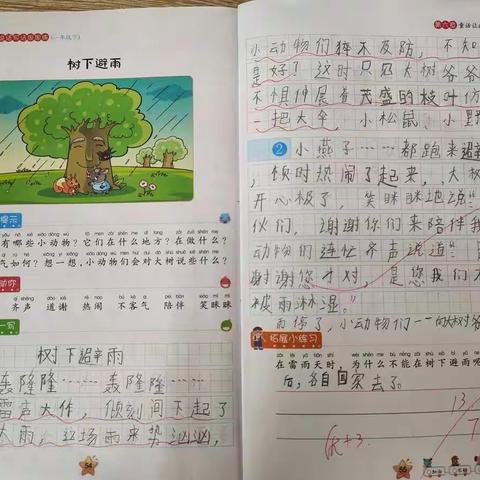 看图说话写话训练(一年级下)
树下避雨
提示
有哪些小动物？它们在什么地方？在做什么？
气如何？想一想，小动物们会对大树说些什么？
助你
齐声 道谢 热闹 不客气 陪伴 笑眯眯
一写
树下避雨
轰隆隆……轰隆隆……
雷声大作，倾刻间下起了
大雨，这场雨来势汹汹，
54
第六卷 童话让
小动物们猝不及防，不知
是好了这时只见大树爷爷
不惧伸展着茂盛的枝叶仿
一把大伞，小松鼠、小野
2 小燕子……都跑来避
，顿时热闹了起来，大树
开心极了，笑眯眯地道：
伙们，谢谢你们来陪伴我
动物们连忙齐声说道：“
谢谢您才对，是您我们才
被雨淋湿。”
雨停了，小动物们一一向大树爷
拓展小练习
在雷雨天时 为什么不能在树下避雨呢
后，各自回家去了。
13
7
优+3
55